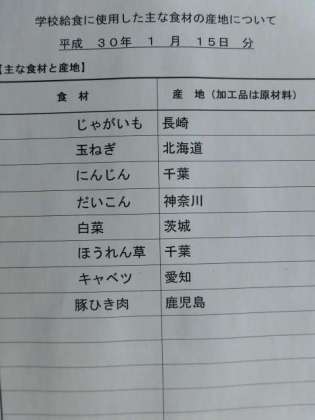 学校給食に使用した主な食材の産地について
平成 30年 1 月 15日 分
【主な食材と産地】
食 材 産 地（加工品は原材料）
じゃがいも 長崎
玉ねぎ 北海道
にんじん 千葉
だいこん 神奈川
白菜 茨城
ほうれん草 千葉
キャベツ 愛知
豚ひき肉 鹿児島